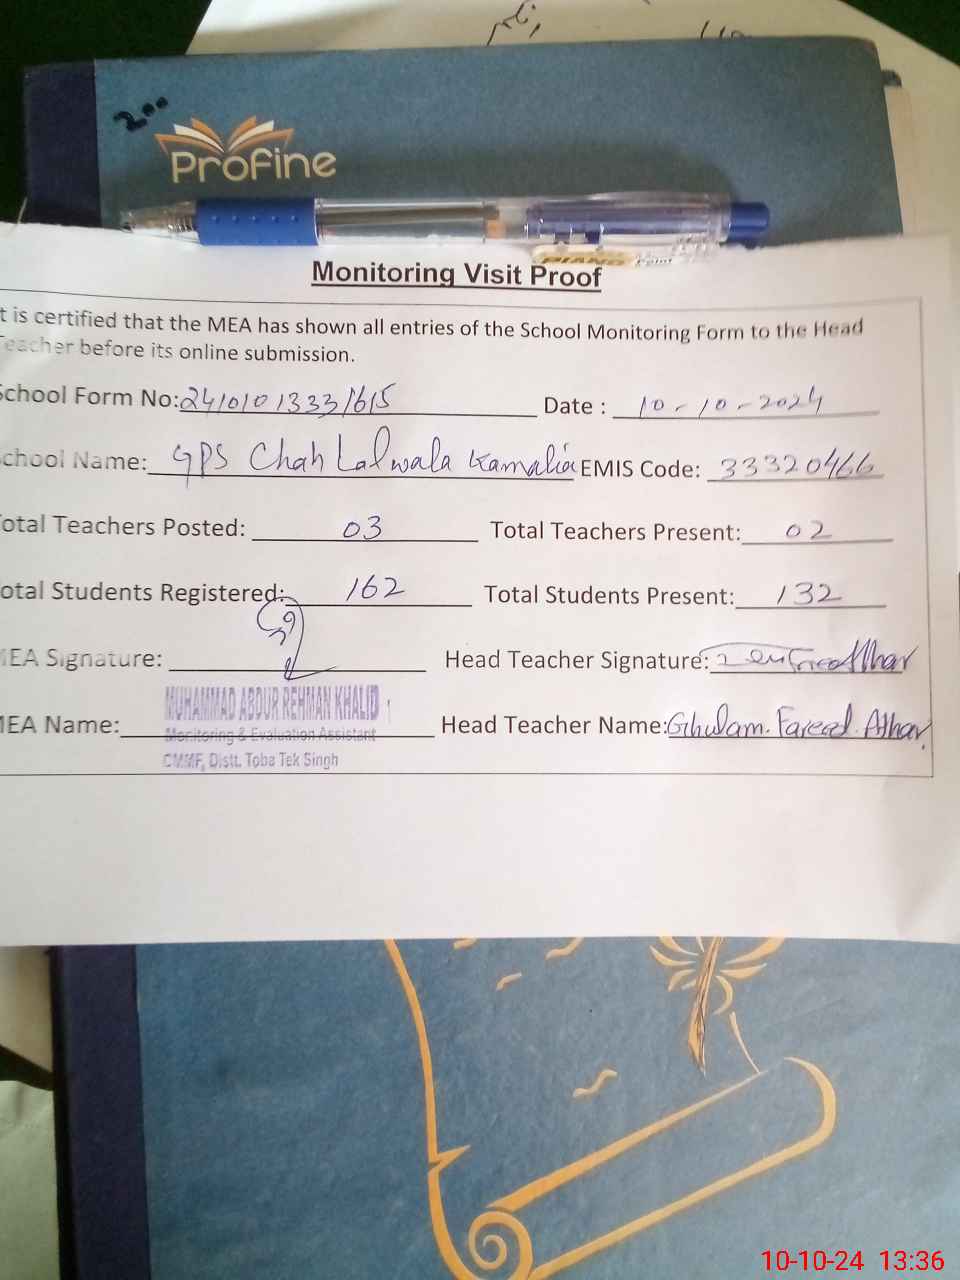 200
Profine
PIANO Point
Monitoring Visit Proof
t is certified that the MEA has shown all entries of the School Monitoring Form to the Head
Teacher before its online submission.
School Form No: 24101013331615 Date : 10-10-2024
School Name: GPS Chah Lalwala Kamalia EMIS Code: 33320466
Total Teachers Posted: 03 Total Teachers Present: 02
Total Students Registered: 162 Total Students Present: 132
MEA Signature: Head Teacher Signature: Athar
MUHAMMAD ABDUR REHMAN KHALID
MEA Name: Head Teacher Name: Ghulam. Fareed. Athar
Monitoring & Evaluation Assistant
CMMF, Distt. Toba Tek Singh
10-10-24 13:36